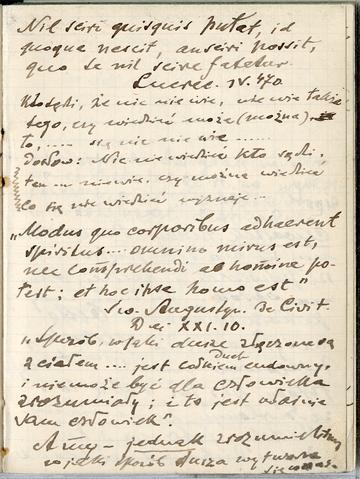 Nil sciri quisquis putat, id
quoque nescit, an sciri possit,
quo se nil scire fatetur.
Lucrec. IV. 470.
Kto sądzi, że nic nie wie, nie wie także
tego, czy wiedzieć może (można),
to, .... się nic nie wie ......
Dosłow: Nic nie wiedzieć kto sądzi,
ten ... nie wie, czy można wiedzieć
co się nie wiedzieć wyznaje...
„Modus quo corporibus adhaerent
spiritus... omnino mirus est,
nec comprehendi ab homine po-
test; et hoc ipse homo est"
Św. Augustyn. De Civit.
Dei XXI. 10.
„Sposób, w jaki dusze złączone są
z ciałem.... jest całkiem cudowny,
Duch
i nie może być dla człowieka
zrozumiały; i to jest właśnie
sam człowiek".
A my – jednak
w jaki sposób dusza wytwarza
się